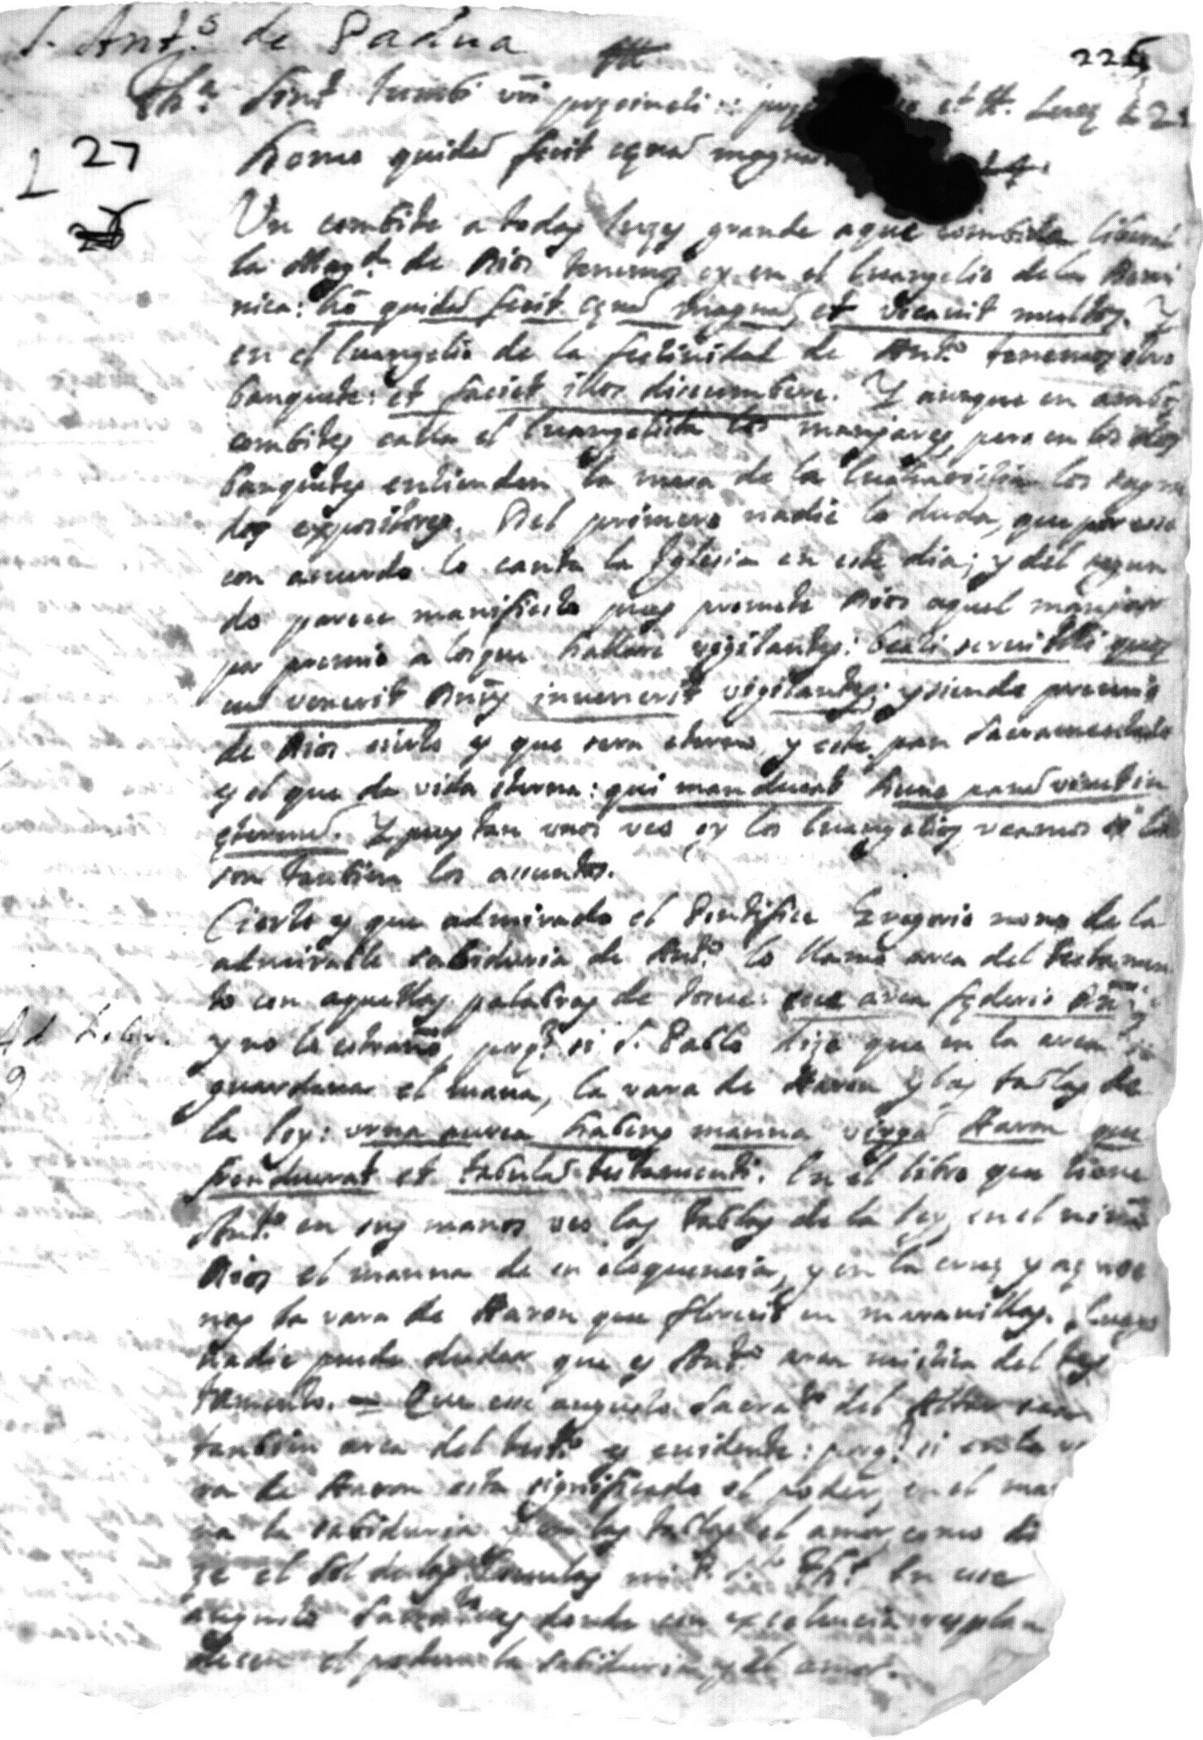 S. Ant.º de Padua
226
Th.ª Sint lumbi vri præcincti et Lucæ 12
27
homo quidã fecit cænã magnã 14.
Un combite a todas luzes grande a que combida liberal
la Mag.d de Dios tenemos oy en el Euangelio de la Domi
nica: hõ quidã fecit cænã magnã, et vocauit multos. Y
en el Euangelio de la festiuidad de Ant.º tenemos otro
banquete: et faciet illos discumbere. Y aunque en ambos
combites calla el Euangelista los manjares, pero en los dos
banquetes entienden la mesa de la Eucharistia los sagra
dos expositores. Del primero nadie lo duda, que por esso
con acuerdo lo canta la Iglesia en este dia; y del segun
do parece manifiesto pues promete Dios aquel manjar
por premio a los que hallare vigilantes: beati serui illi quos
cũ venerit Dñs inuenerit vigilantes; y siendo premio
de Dios cierto es que sera eterno, y este pan Sacramentado
es el que da vida eterna: qui manducat hunc panẽ viuet in
æternũ. Y pues tan unos veo oy los Euangelios veamos si lo
son tambien los assuntos.
Cierto es que admirado el Pontifice Gregorio nono de la
admirable sabiduria de Ant.º lo llamo arca del testamen
to con aquellas palabras de tome: arca fæderis Dñi
y no lo estraño, porq.e si S. Pablo dize que en la arca se
Ad Hebr.
9
guardaua el mana, la vara de Aaron y las tablas de
la ley: urna aurea habens manna virga Aaron quæ
fronduerat et tabulæ testamenti. En el libro que tiene
Ant.º en sus manos veo las tablas de la ley, en el niño
Dios el manna de su eloquencia, y en la cruz y açuce
nas la vara de Aaron que florecio en marauillas. Luego
nadie puede dudar que es Ant.º arca mistica del tes
tamento. Que esse augusto Sacra.to del Altar sea
tambien arca del test.to es euidente: porq.e si en la va
ra de Aaron esta significado el poder, en el ma
na la sabiduria y en las tablas el amor, como di
ze el Sol de las Escuelas mi P. S.to Th.s En esse
augusto Sacra.to es donde con excelencia resplan
desen el poder la sabiduria y el amor.